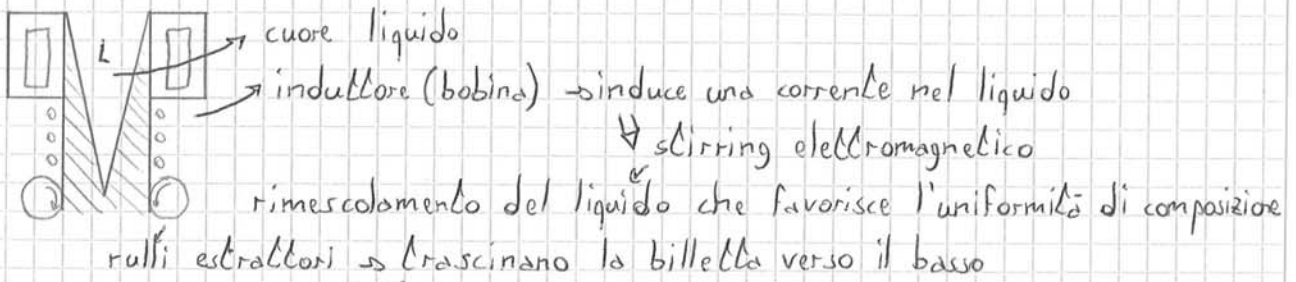 L
cuore liquido
induttore (bobina) → induce una corrente nel liquido
⇓ stirring elettromagnetico
rimescolamento del liquido che favorisce l'uniformità di composizione
rulli estrattori → trascinano la billetta verso il basso